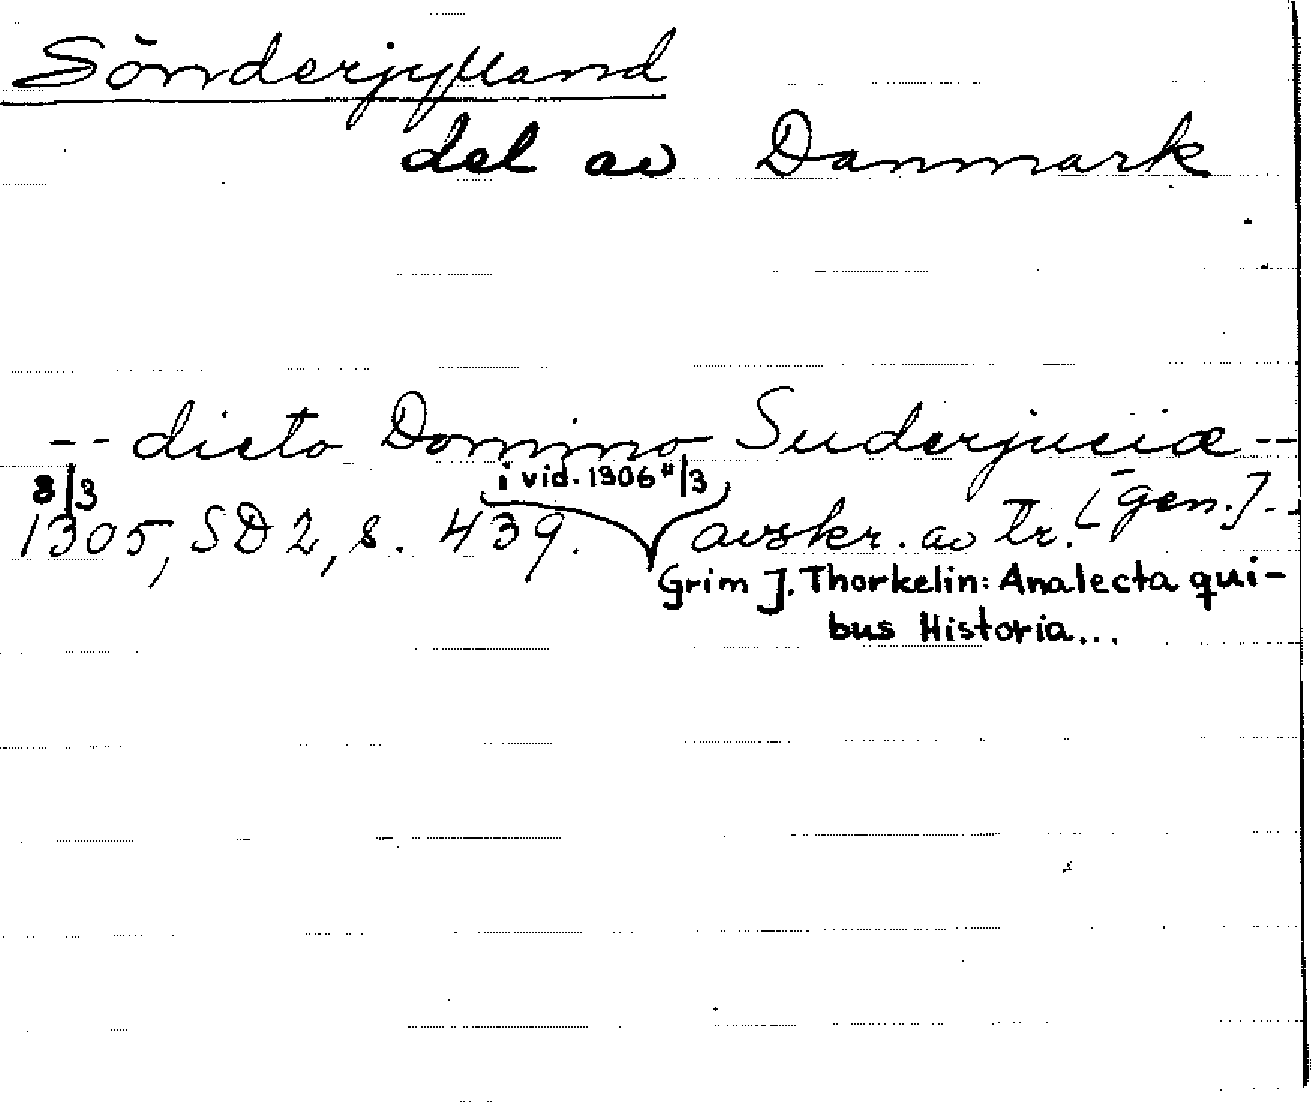 Sönderjylland
del av Danmark
-- dicto Domino Suderjuciæ --
[gen.]--
8/3 1305, SD 2, s. 439. i vid. 1306 4/3 avskr. av tr.
Grim J. Thorkelin: Analecta qui-
bus Historia...